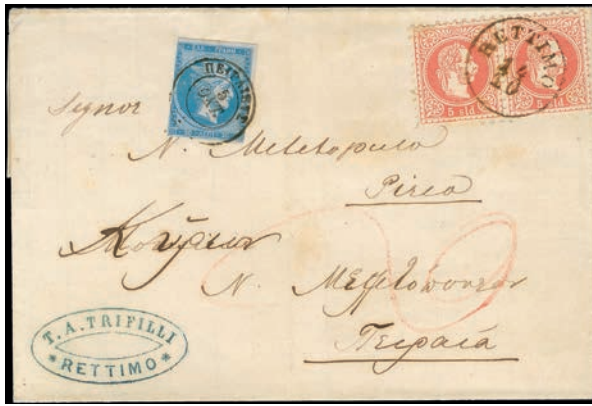 ΠΕΙΡΑΙΕΥΣ
5
ΟΚΤ
RETTIMO
10
5 sld
5 sld
Signor
N. Meletopulo
Pireo
Κύριον
Ν. Μελετόπουλον
Πειραιά
T. A. TRIFILLI
* RETTIMO *